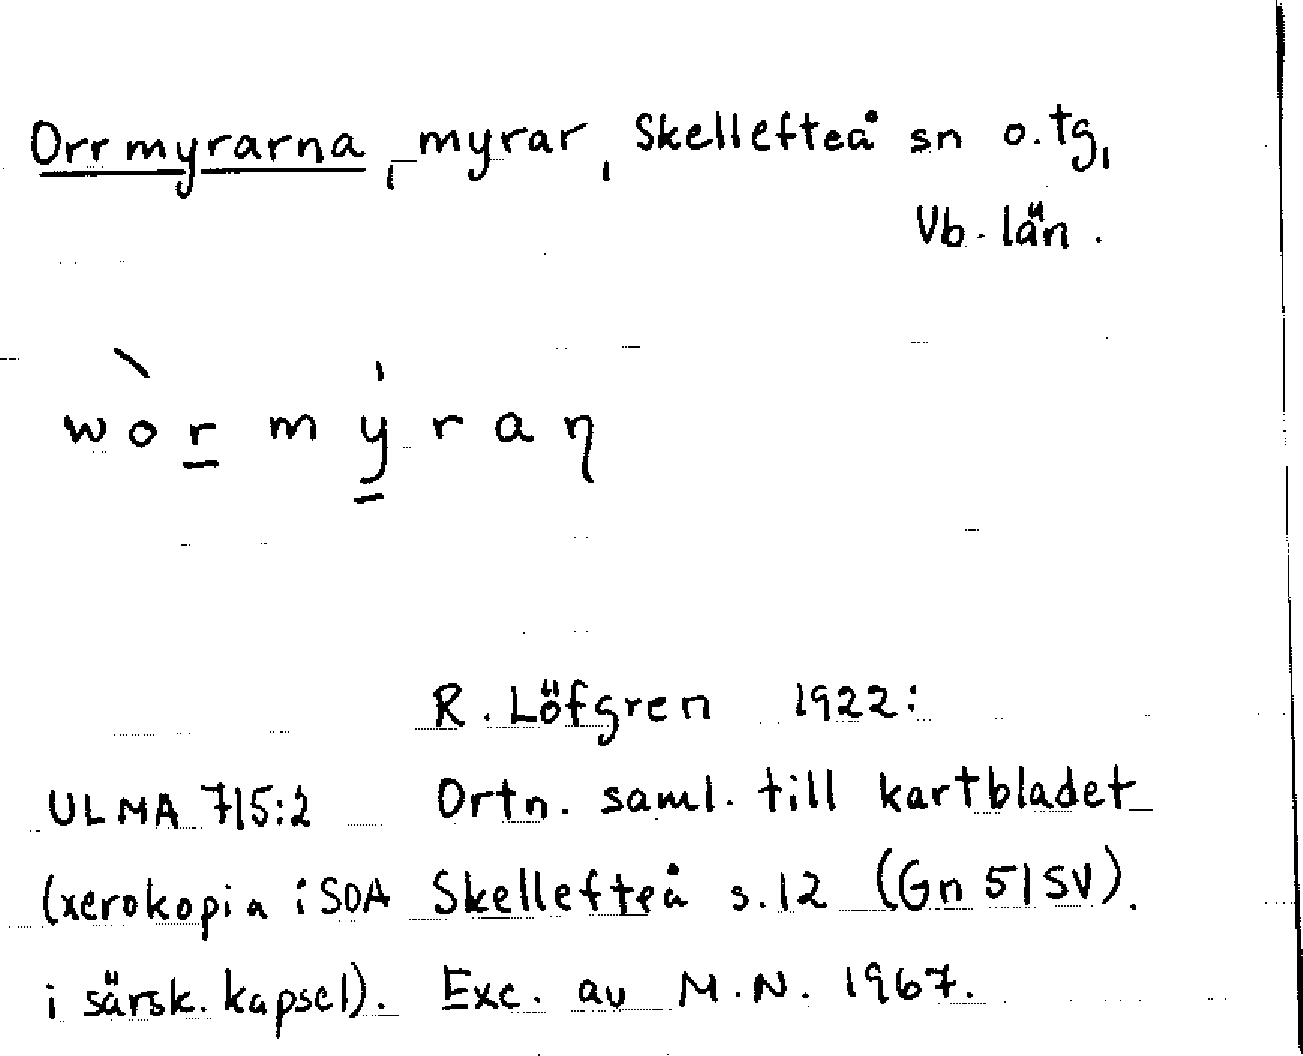 Orrmyrarna, myrar, Skellefteå sn o. tg,
Vb. län.
wòr mýraŋ
R. Löfgren 1922:
ULMA 715:2 Ortn. saml. till kartbladet
(xerokopia i SOA Skellefteå s. 12 (Gn 51 SV).
i särsk. kapsel). Exc. av M.N. 1967.